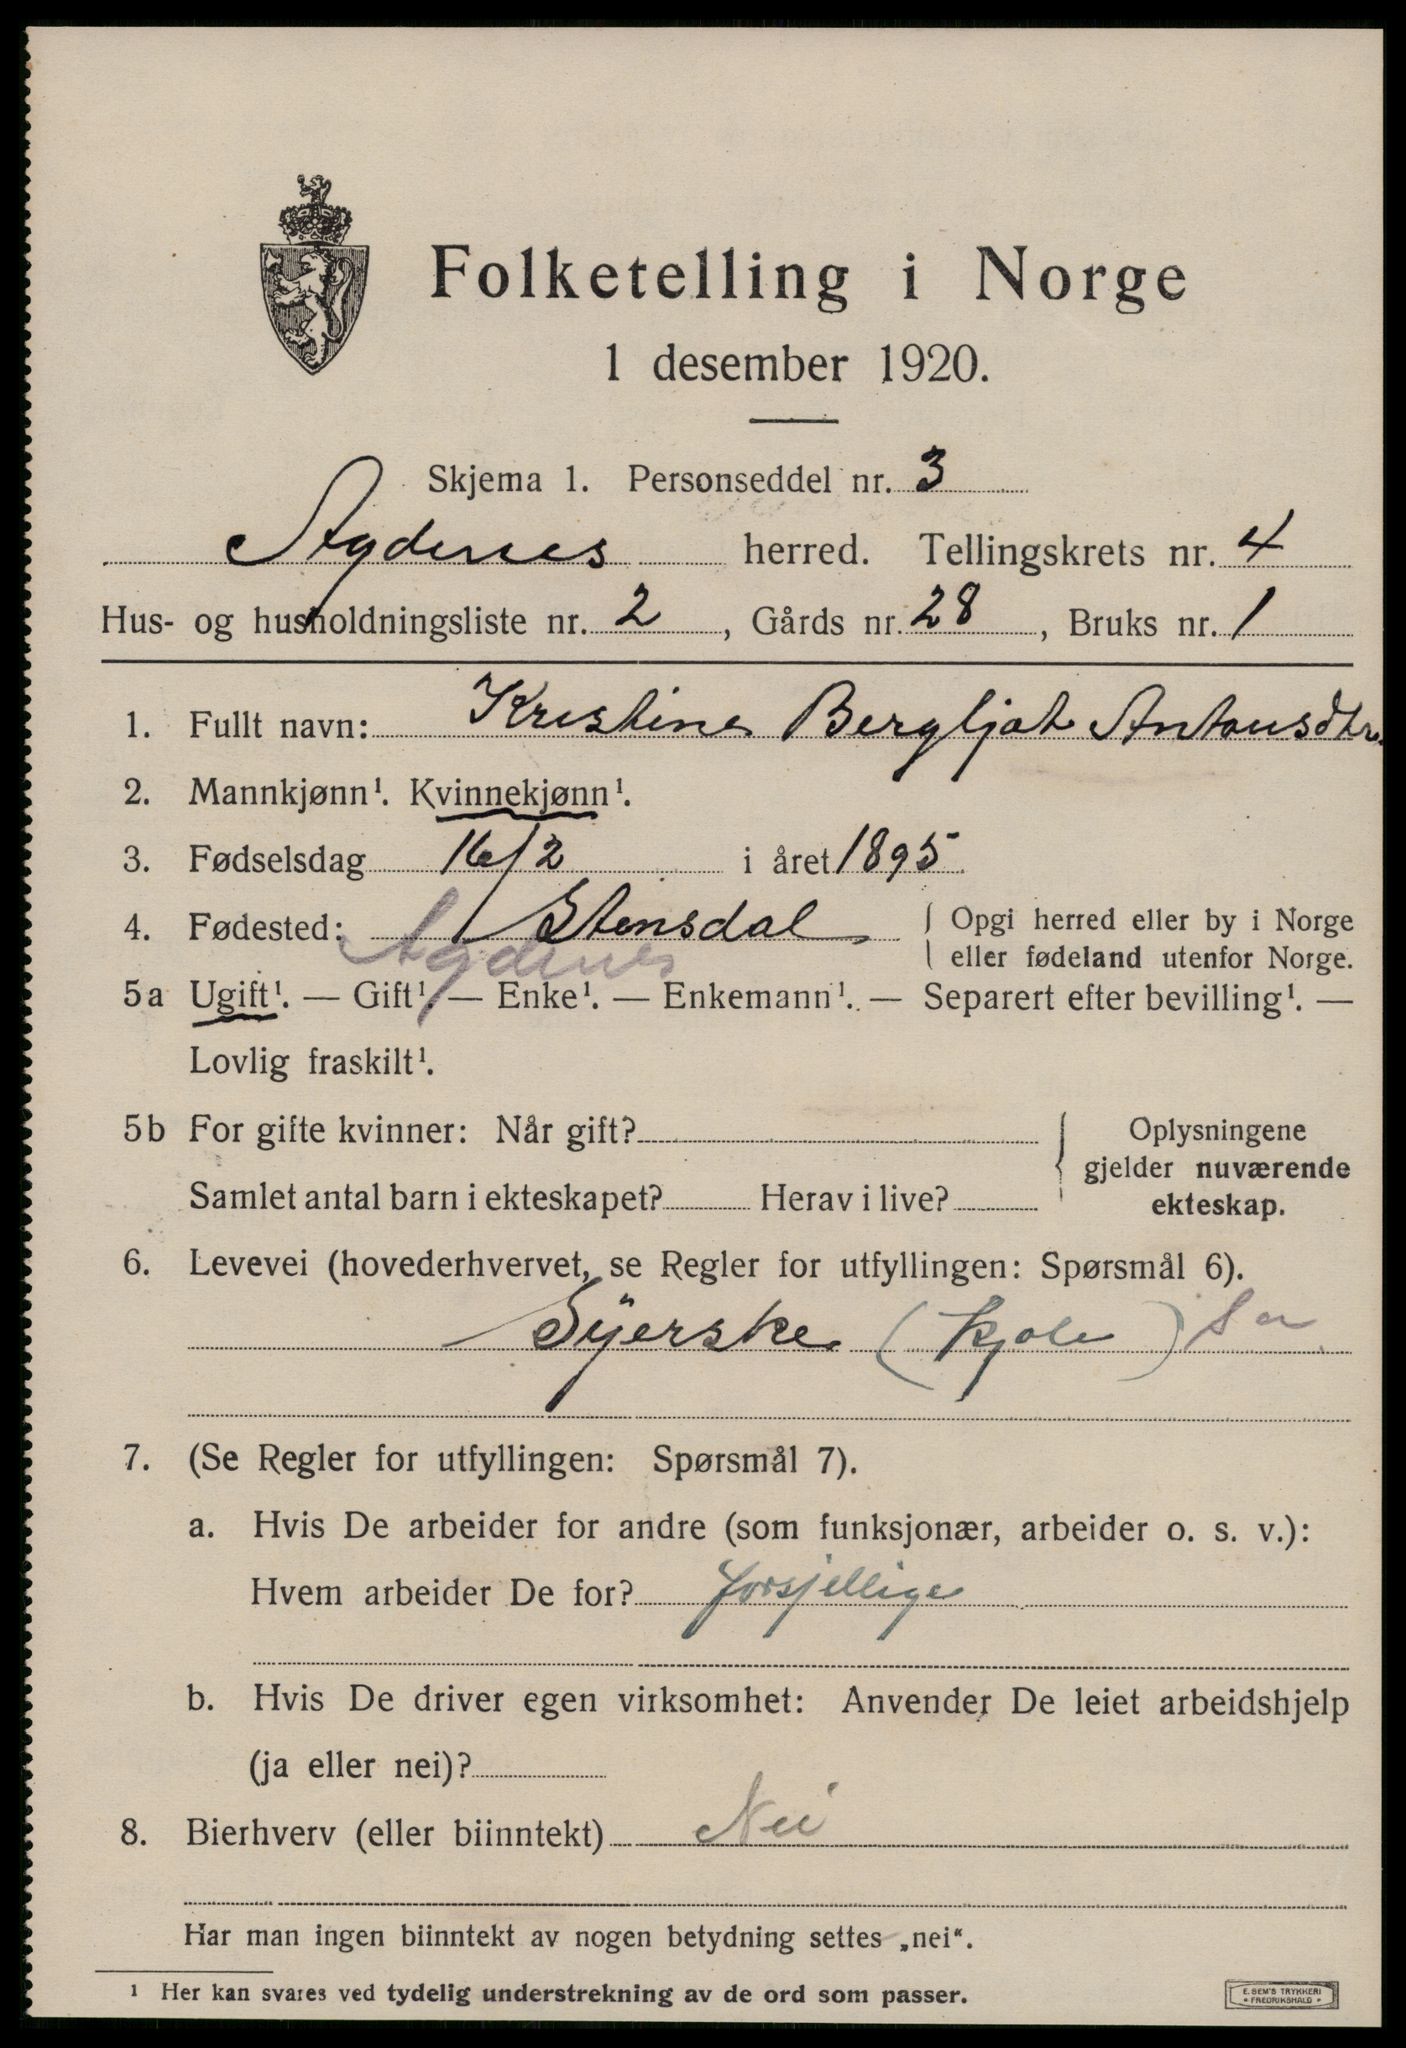 Folketelling i Norge
1 desember 1920.
Skjema 1. Personseddel nr. 3
Agdenes herred. Tellingskrets nr. 4
Hus- og husholdningsliste nr. 2, Gårds nr. 28, Bruks nr. 1
1. Fullt navn: Kristine Bergljot Antonsdtr.
2. Mannkjønn¹. Kvinnekjønn¹.
3. Fødselsdag 16/2 i året 1895
4. Fødested: Stensdal { Opgi herred eller by i Norge
Agdenes eller fødeland utenfor Norge.
5a Ugift¹. — Gift¹. — Enke¹. — Enkemann¹. — Separert efter bevilling¹. —
Lovlig fraskilt¹.
5b For gifte kvinner: Når gift? Oplysningene
gjelder nuværende
Samlet antal barn i ekteskapet? Herav i live? ekteskap.
6. Levevei (hovederhvervet, se Regler for utfyllingen: Spørsmål 6).
Syerske (kjole)
7. (Se Regler for utfyllingen: Spørsmål 7).
a. Hvis De arbeider for andre (som funksjonær, arbeider o. s. v.):
Hvem arbeider De for? forsjellige
b. Hvis De driver egen virksomhet: Anvender De leiet arbeidshjelp
(ja eller nei)?
8. Bierhverv (eller biinntekt) Nei
Har man ingen biinntekt av nogen betydning settes „nei“.
¹ Her kan svares ved tydelig understrekning av de ord som passer.
E. SEM'S TRYKKERI
• FREDRIKSHALD •